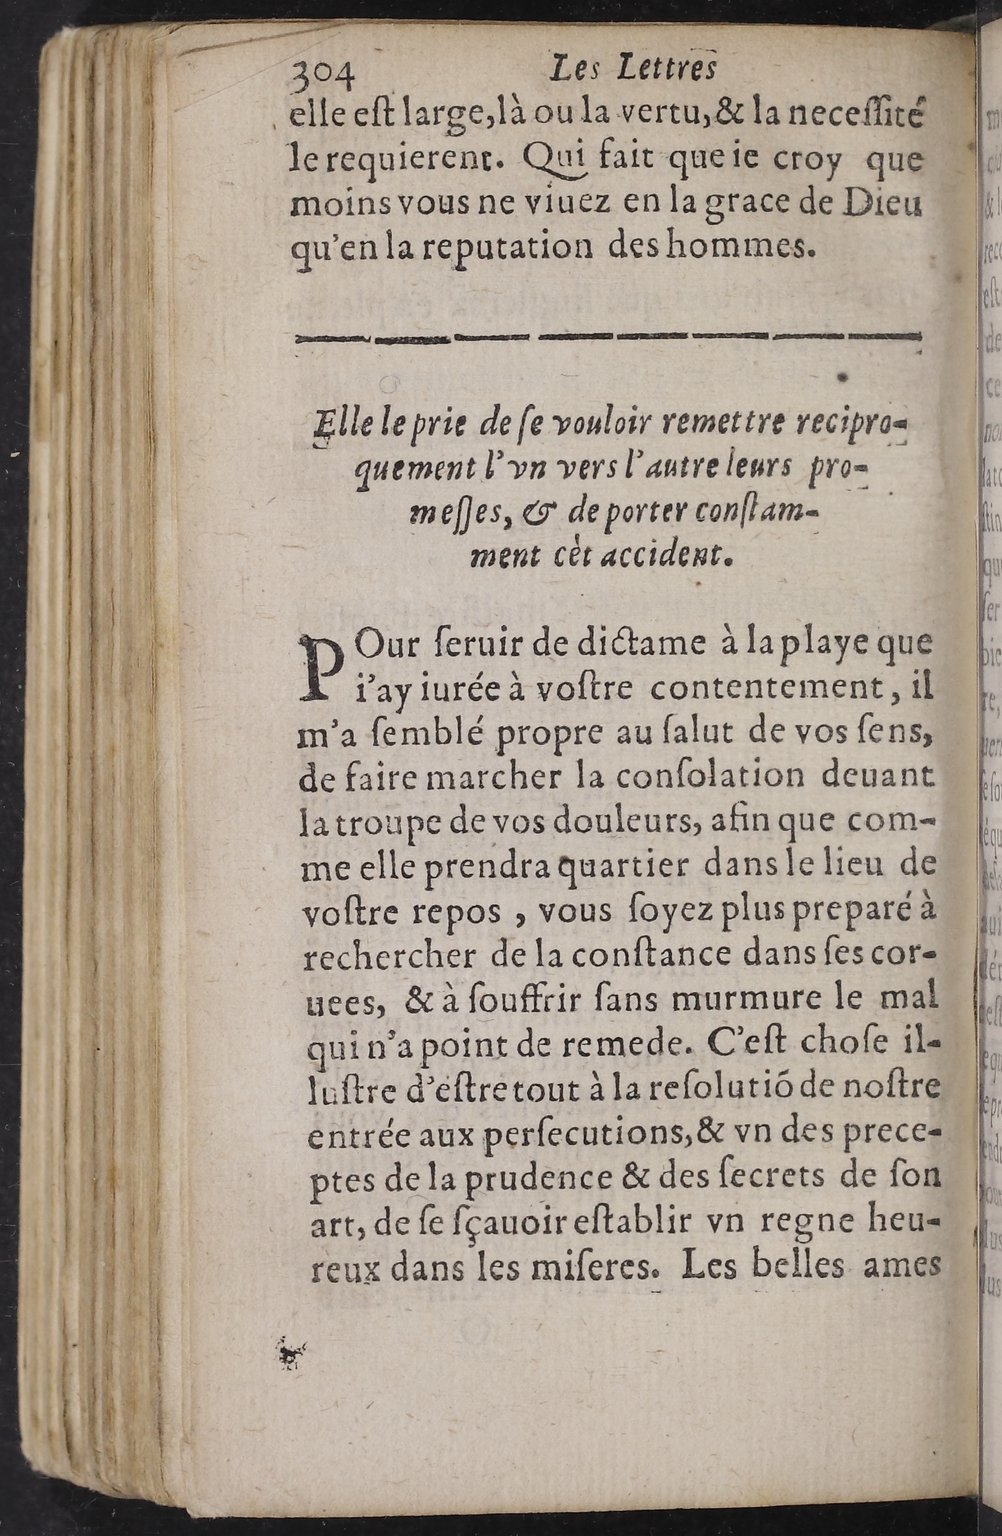 304 Les Lettres
elle eſt large, là ou la vertu, & la neceſſité
le requierent. Qui fait que ie croy que
moins vous ne viuez en la grace de Dieu
qu'en la reputation des hommes.
Elle le prie de ſe vouloir remettre recipro-
quement l'vn vers l'autre leurs pro-
meſſes, & de porter conſtam-
ment cèt accident.
POur ſeruir de dictame à la playe que
i'ay iurée à voſtre contentement, il
m'a ſemblé propre au ſalut de vos ſens,
de faire marcher la conſolation deuant
la troupe de vos douleurs, afin que com-
me elle prendra quartier dans le lieu de
voſtre repos, vous ſoyez plus preparé à
rechercher de la conſtance dans ſes cor-
uees, & à ſouffrir ſans murmure le mal
qui n'a point de remede. C'eſt choſe il-
luſtre d'eſtre tout à la reſolutiõ de noſtre
entrée aux perſecutions, & vn des prece-
ptes de la prudence & des ſecrets de ſon
art, de ſe ſçauoir eſtablir vn regne heu-
reux dans les miſeres. Les belles ames